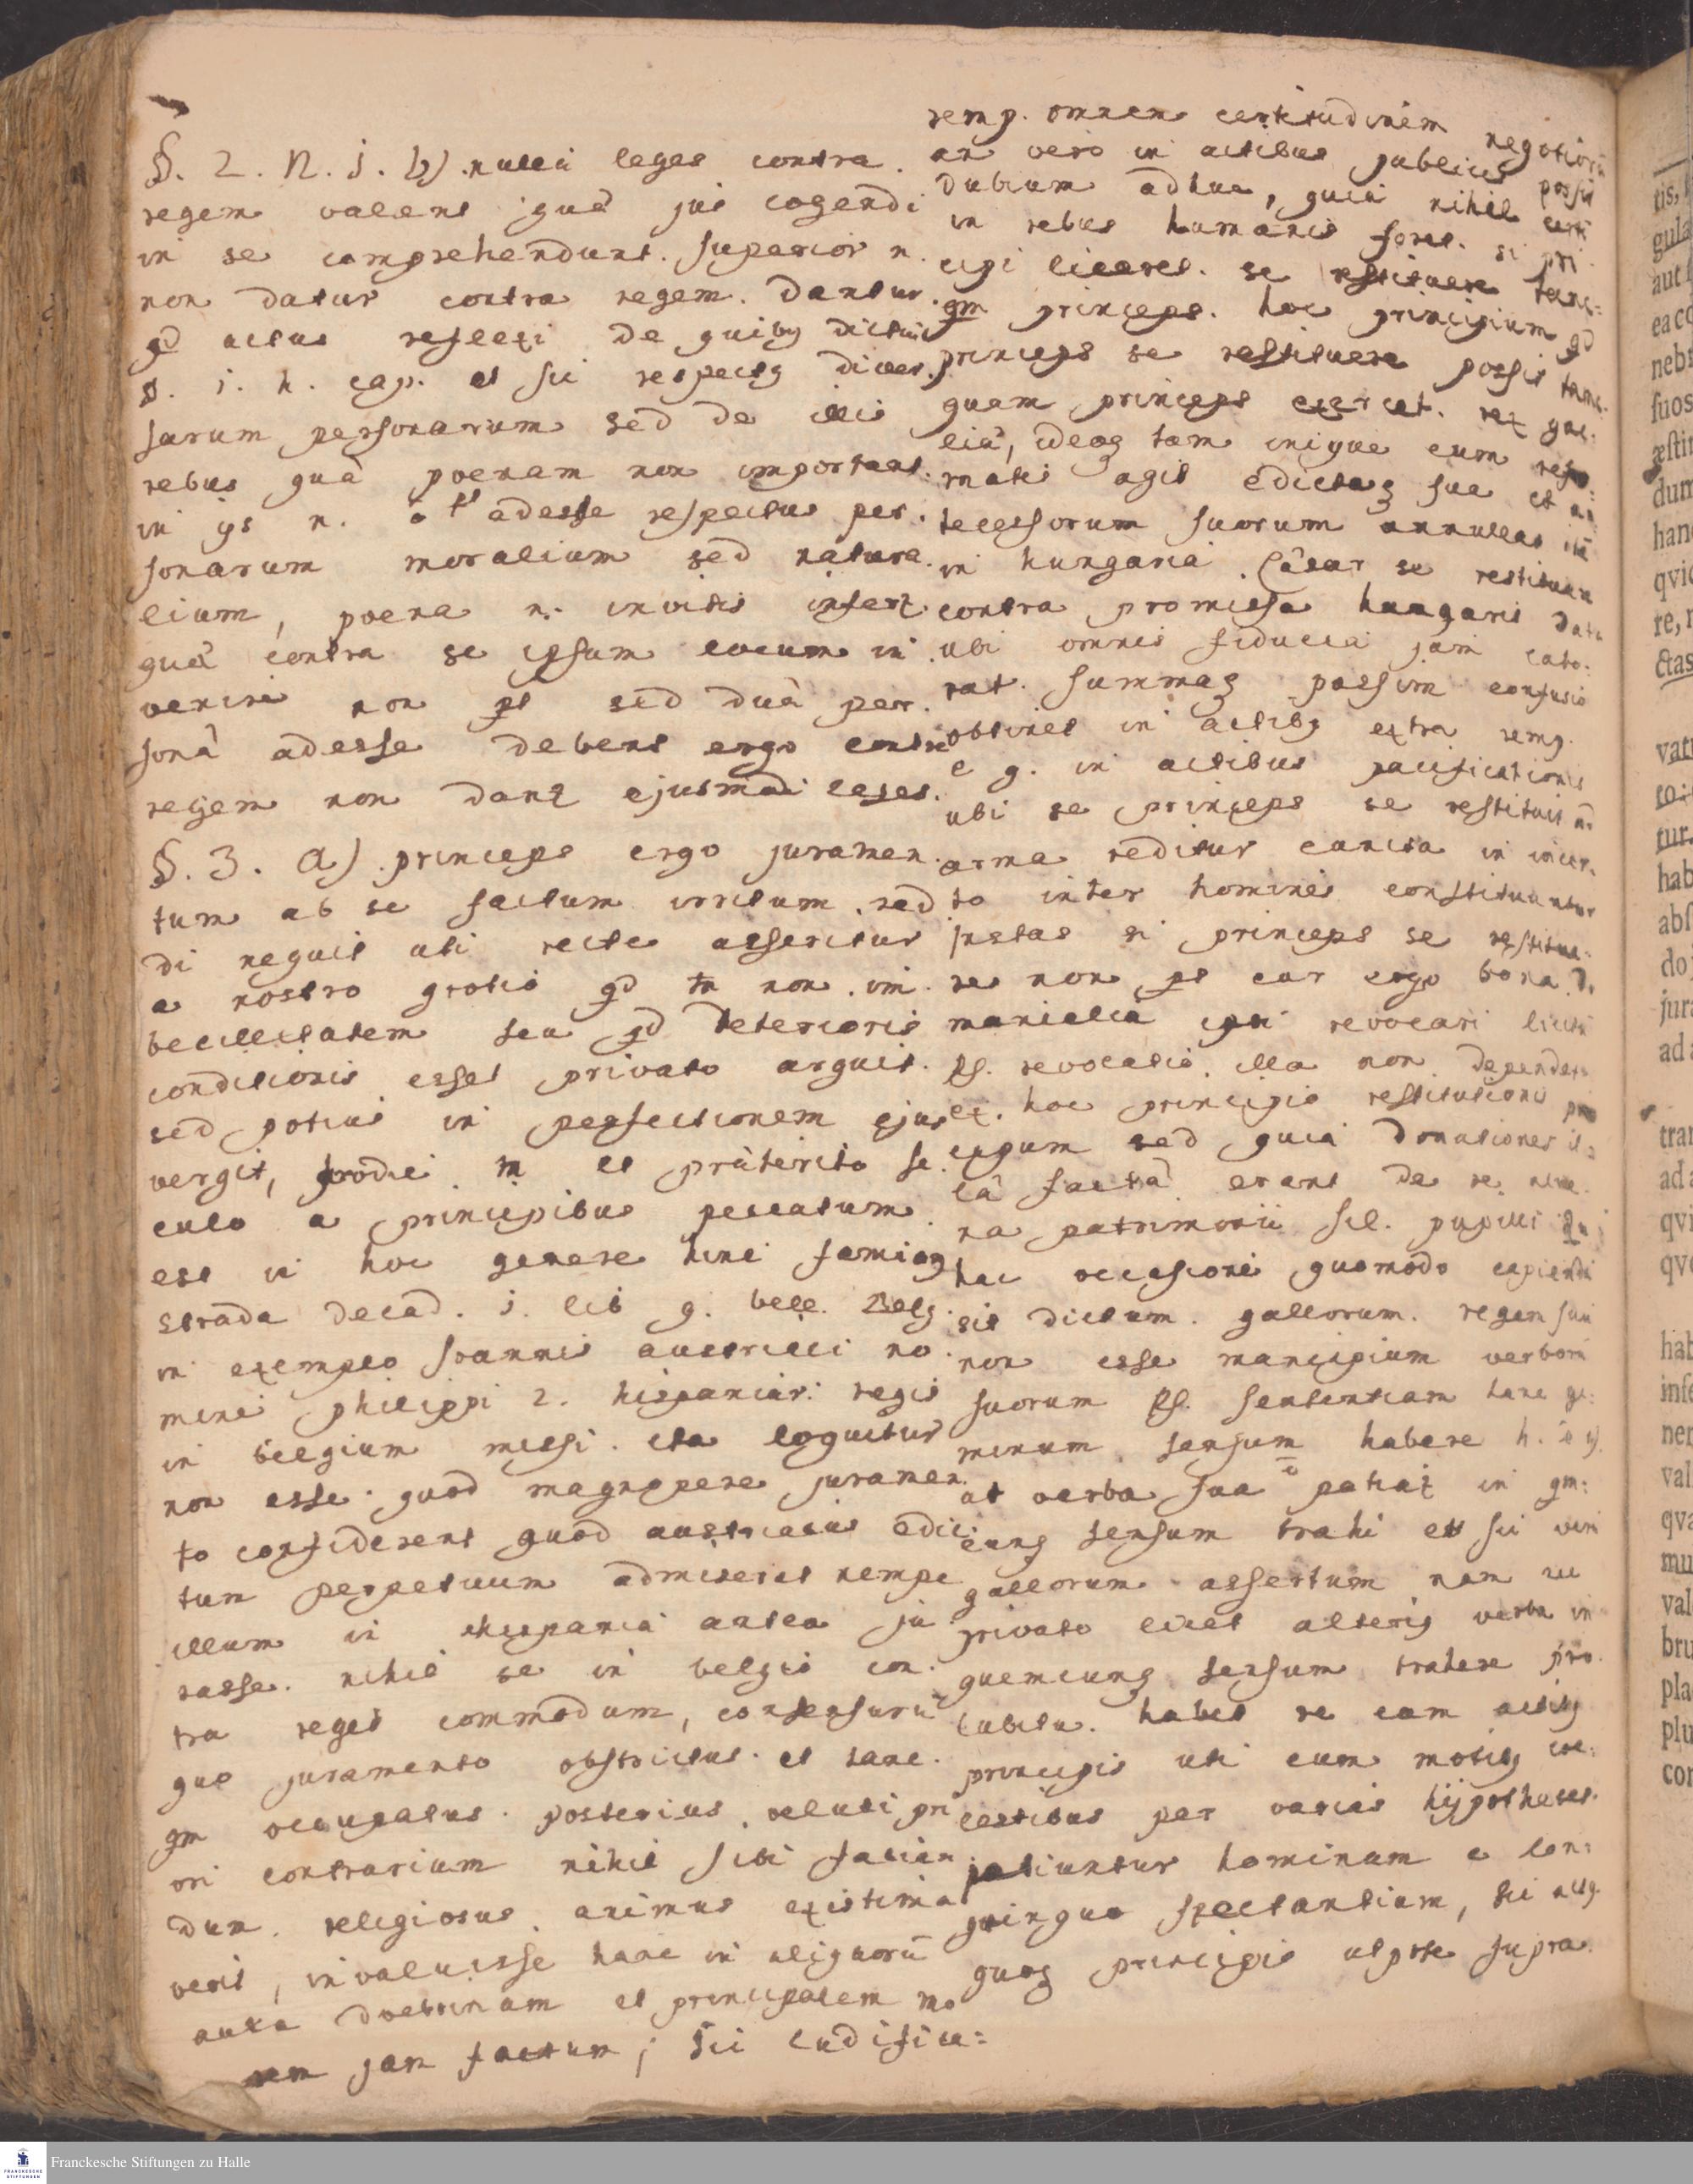 §. 2. N. 1. b) nullá leges contra
regem valent quá jus cogendi
in se comprehendunt. superior n.
non datur contra regem. dantur
qd actus reflexi de quibq dictum
§. 1. h. cap. et sic respectq diver
sarum personarum sed de illis
rebus quá poenam non important.
in ijs n. adesse respectus per.
sonarum moralium sed natura.
lium, poena n. invitis infert
quá contra se ipsum locum in
venire non pt sed duá per.
soná adesse debent ergo contra
regem non dant ejusmodi leges.
§. 3. a) princeps ergo juramen.
tum ab se factum irritum red
di nequit uti recte asseritur
a nostro grotio qd tn non im
becillitatem seu qd deterioris
conditionis esset privato arguit.
sed potius in perfectionem ejus
vergit, hodie tn et práterito se.
culo a principibus peccatum
est in hoc genere hinc famiaq
strada decad. 1. lib 9. bell. Belg.
in exemplo Joannis austriaci no.
mine philippi 2. hispaniar. regis
in belgium missi ita loquitur
non esse quod magnopere juramen
to confiderent quod austriacus edic
tum perpetuum admiserit nempe
illum in hispania antea ju
rasse. nihil se in belgio con.
tra regis commodum, consensurū
que juramento obstrictus et sane.
qm occupatus posterius veluti pri
ori contrarium nihil sibi facien
dum religiosus animus existima
verit, invaluisse hanc in aliquorū
aula doctrinam et principalem mo
rem jam factum; sic ludifica=
remp. omnem certitudinem negotiorū
an vero in actibus publicis possit
dubium adhuc, quia nihil certi
in rebus humanis foret. si pri
cipi liceret. se restituere tanc=
qm princeps. hoc principium qd
princeps se restituere possit tam
quam princeps exercet. rex gal.
liá, ideoq tam inique cum refor
matis agit edictaq sua et an
tecessorum suorum annullat ita
in hungaria Cásar se restituit
contra promissa hungaris data
ubi omnis fiducia jam cato.
rat. summaq passim confusio
obtinet in actibq extra remp.
e g. in actibus pacificationis
ubi se princeps se restituit ad
arma reditur cuncta in incer.
to inter homines constituuntur
instas si princeps se restitue.
re non pt cur ergo bona do
manialia ipsi revocari licitū
Rs. revocatio illa non dependet
ex hoc principio restitutionis prin
cipum sed quia donationes il=
lá factá erant de re aliena
na patrimonii scil. pupilli
hac occasione quomodo capiendū
sit dictum gallorum regem suū
non esse mancipium verborū
suorum Rs. sententiam hanc ge:
minum sensum habere h. e
ut verba sua patiat in qm:
cunq sensum trahi et sic
gallorum assertum nam nec
privato licet alteriq verba in
quemcunq sensum trahere pro
lubitu. habet se cum actibq
principis uti cum motibq coe:
lestibus per varias hÿpotheses.
patiuntur hominum e lon:
ginquo spectantium, sic
quoq principis ut pote supra